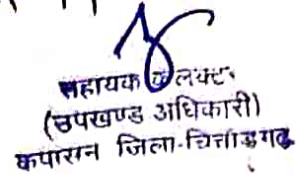 सहायक कलक्टर
(उपखण्ड अधिकारी)
कपासन जिला-चित्तौड़गढ़